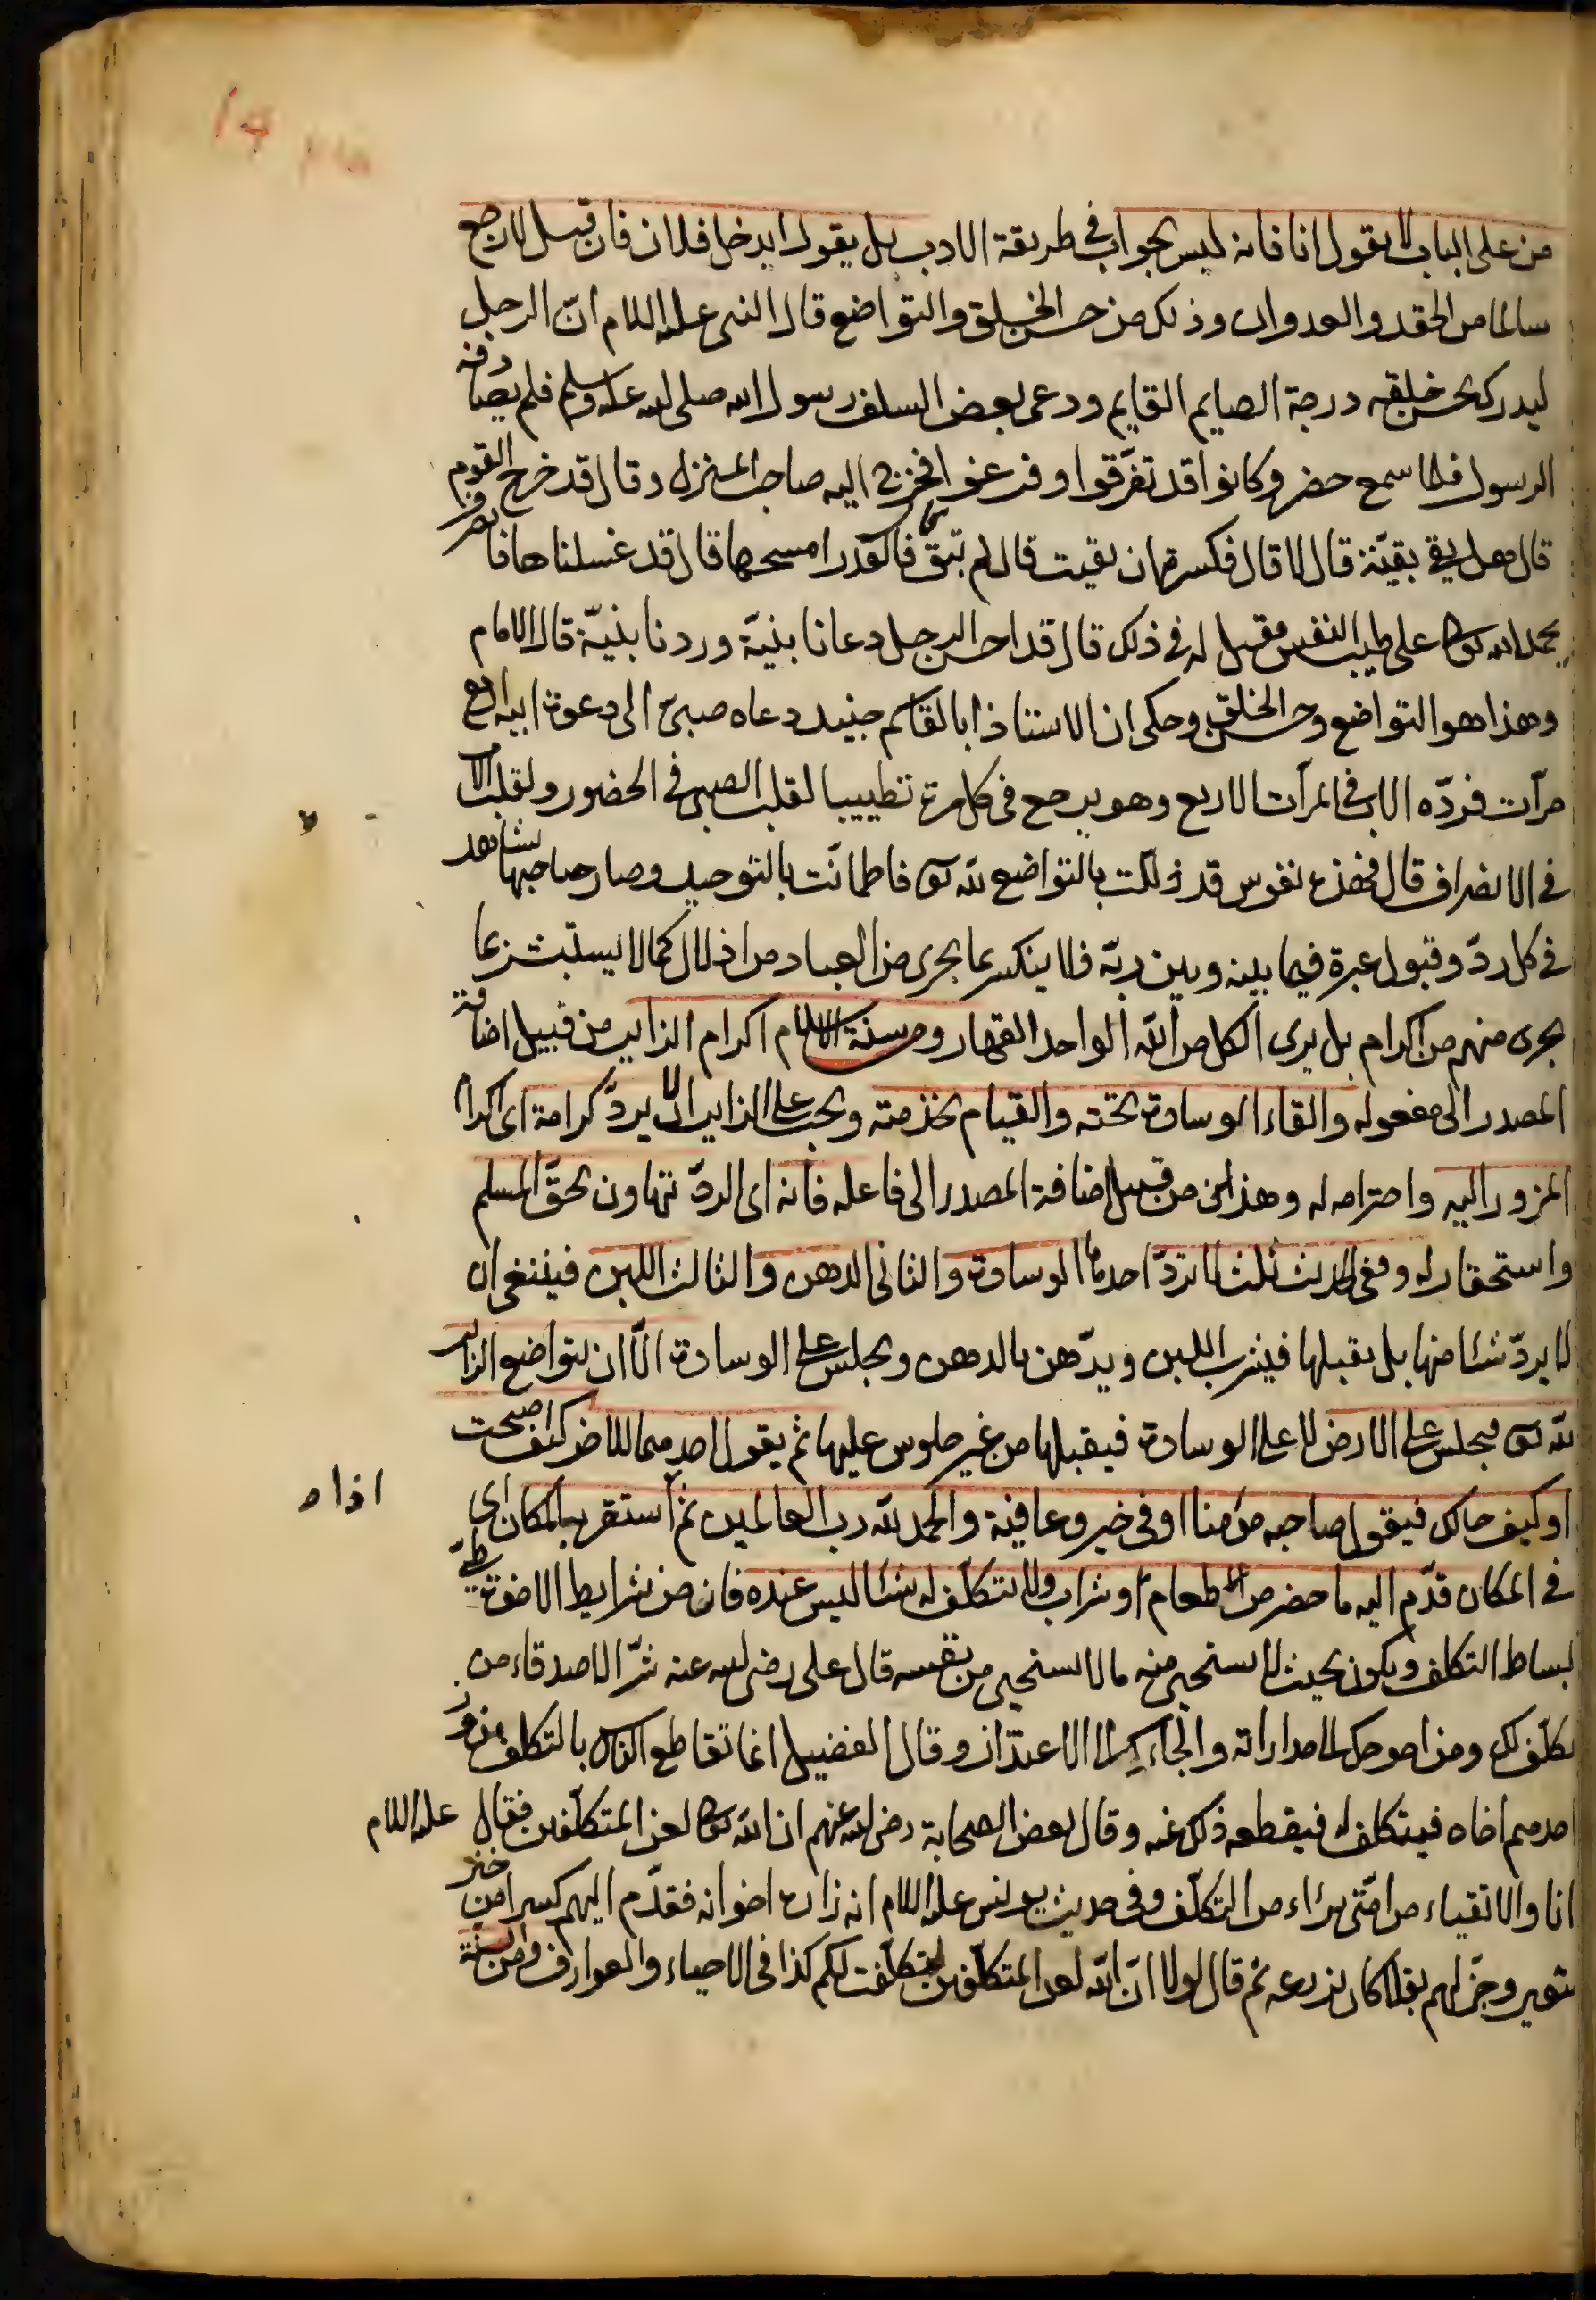 من على الباب لا يقول انا فانه ليس بجواب في طريقة الادب بل يقول ايدخل فلان فان قيل لا رجع
سالما من الحقد والعدوان وذلك من حسن الخلق والتواضع قال النبي عليه السلام انّ الرجل
ليدرك بحسن خلقه درجة الصايم القايم ودعى بعض السلف رسول الله صلى الله عليه وسلم فلم يصادفه
الرسول فلما سمع حضر وكانوا قد تفرّقوا وفرغوا فخرج اليه صاحب المنزل وقال قد خرج القوم
قال هل بقي بقيّة قال لا قال فكسرة ان بقيت قال لم تبق قال فالقدر امسحها قال قد غسلناها فانصرف
بحمد الله تعالى على طيب النفس فقيل له في ذلك قال قد احسن الرجل دعانا بنيّة وردنا بنيّة قال الامام
وهذا هو التواضع وحسن الخلق وحكى ان الاستاذ ابا القاسم جنيد دعاه صبيّ الى دعوة ابيه اربع
مرّات فردّه الاب في المرّات الاربع وهو يرجع في كل مرة تطييبا لقلب الصبي في الحضور ولقلب الاب
في الانصراف قال فهذه نفوس قد ذلّلت بالتواضع لله تعالى فاطمأنّت بالتوحيد وصار صاحبها يشاهد
في كل ردّ وقبول عبرة فيما بينه وبين ربّه فلا ينكسر بما يجرى من العباد من اذلال كما لا يستبشر بما
يجرى منهم من اكرام بل يرى الكل من الله الواحد القهار ومن سنة الاسلام اكرام الزاير من قبيل اضافة
المصدر الى مفعوله والقاء الوسادة تحته والقيام بخدمته ويجب على الزاير ان لا يردّ كرامة اى اكرام
المزور اليه واحترامه له وهذا من قبيل اضافة المصدر الى فاعله فانه اى الردّ تهاون بحقّ المسلم
واستحقار له وفى الحديث ثلث لا تردّ احدها الوسادة والثانى الدهن والثالث اللبن فينبغى ان
لا يردّ شئا منها بل يقبلها فيشرب اللبن ويدّهن بالدهن ويجلس على الوسادة الّا ان يتواضع الزاير
لله تعالى فيجلس على الارض لا على الوسادة فيقبلها من غير جلوس عليها ثم يقول احدهما للاخر كيف اصبحت
او كيف حالك فيقول صاحبه مؤمنا او فى خير وعافية والحمد لله رب العالمين ثم استقر به المكان اى
اذا
في المكان قدّم اليه ما حضر من الطعام او شراب ولا يتكلّف له شئا ليس عنده فان من شرايط الاخوة طىّ
بساط التكلف ويكون بحيث لا يستحيى منه ما لا يستحيى من نفسه قال على رضى الله عنه شرّ الاصدقاء من
تكلّف لك ومن احوجك الى مداراته والجاءك الى الاعتذار وقال الفضيل انما تقاطع الناس بالتكلف يزور
احدهم اخاه فيتكلف له فيقطعه ذلك عنه وقال بعض الصحابة رضى الله عنهم ان الله تعالى لعن المتكلّفين فقال عليه السلام
انا والاتقياء من امّتى برآء من التكلّف وفى حديث يونس عليه السلام انه زاره اخوانه فقدّم اليهم كسرا من خبز
شعير وجزّ لهم بقلا كان يزرعه ثم قال لولا انّ الله لعن المتكلّفين لتكلّفت لكم كذا في الاحياء والعوارف ومن السنة